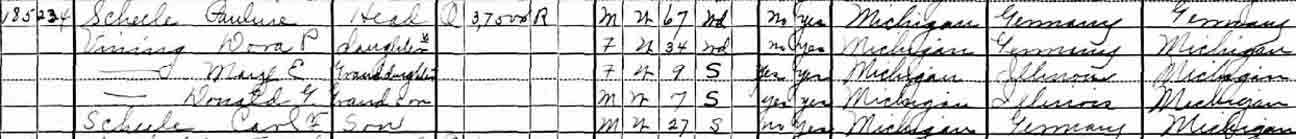 185 234 Scheele Pauline Head O 37,500 R M W 67 Wd No Yes Michigan Germany Germany
Vining Dora P daughter F W 34 Wd No Yes Michigan Germany Michigan
— Marye E Granddaughter F W 9 S Yes Yes Michigan Illinois Michigan
— Donald G. Grandson M W 7 S Yes Yes Michigan Illinois Michigan
Scheele Carl F Son M W 27 S No Yes Michigan Germany Michigan